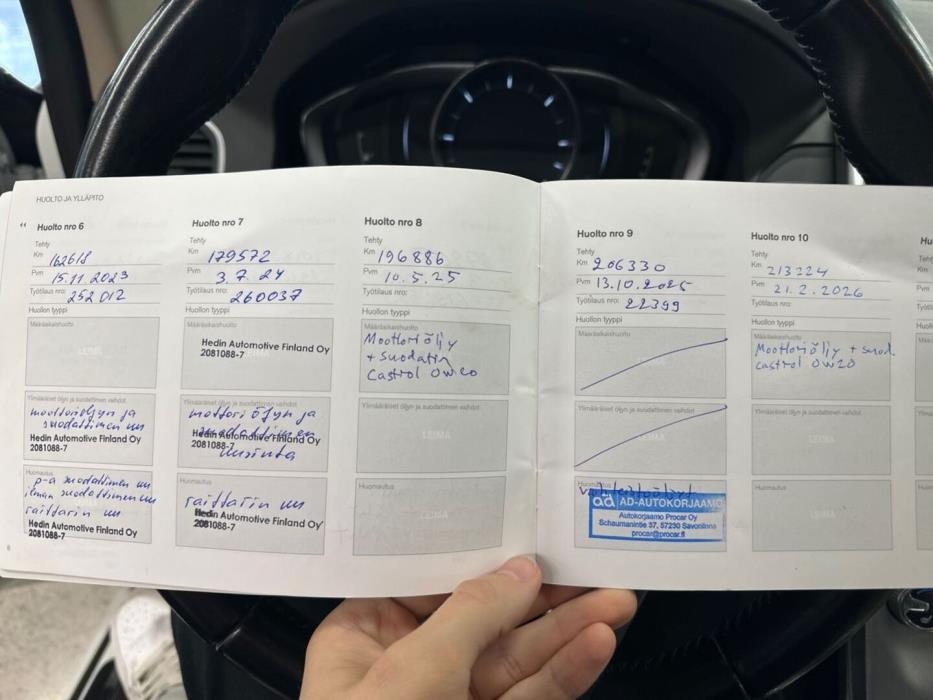 HUOLTO JA YLLÄPITO
Huolto nro 6
Tehty
Km 162618
Pvm 15.11.2023
Työtilaus nro: 252012
Huollon tyyppi
Määräaikaishuolto
LEIMA
Ylimääräiset öljyn ja suodattimen vaihdot
moottoriöljyn ja
suodattimen uus
Hedin Automotive Finland Oy
2081088-7
Huomautus
p-a suodattimen uus
ilman suodattimen uus
raittarin uus
Hedin Automotive Finland Oy
2081088-7
6
Huolto nro 7
Tehty
Km 179572
Pvm 3.7.24
Työtilaus nro: 260037
Huollon tyyppi
Hedin Automotive Finland Oy
2081088-7
Ylimääräiset öljyn ja suodattimen vaihdot
moottoriöljyn ja
suodattimen
Hedin Automotive Finland Oy
2081088-7
uusinta
Huomautus
raittarin uus
Hedin Automotive Finland Oy
2081088-7
Huolto nro 8
Tehty
Km 196886
Pvm 10.5.25
Työtilaus nro:
Huollon tyyppi
Määräaikaishuolto
Moottoriöljy
+ suodatin
Castrol 0W20
Ylimääräiset öljyn ja suodattimen vaihdot
LEIMA
Huomautus
LEIMA
Huolto nro 9
Tehty
Km 206330
Pvm 13.10.2025
Työtilaus nro: 22399
Huollon tyyppi
Määräaikaishuolto
Ylimääräiset öljyn ja suodattimen vaihdot
LEIMA
Huomautus
vaihteistoöljyt
ad AD-AUTOKORJAAMO
Autokorjaamo Procar Oy
Schaumanintie 37, 57230 Savonlinna
procar@procar.fi
Huolto nro 10
Tehty
Km 213224
Pvm 21.2.2026
Työtilaus nro:
Huollon tyyppi
Määräaikaishuolto
Moottoriöljy + suod.
Castrol 0W20
Ylimääräiset öljyn ja suodattimen vaihdot
LEIMA
Huomautus
LEIMA